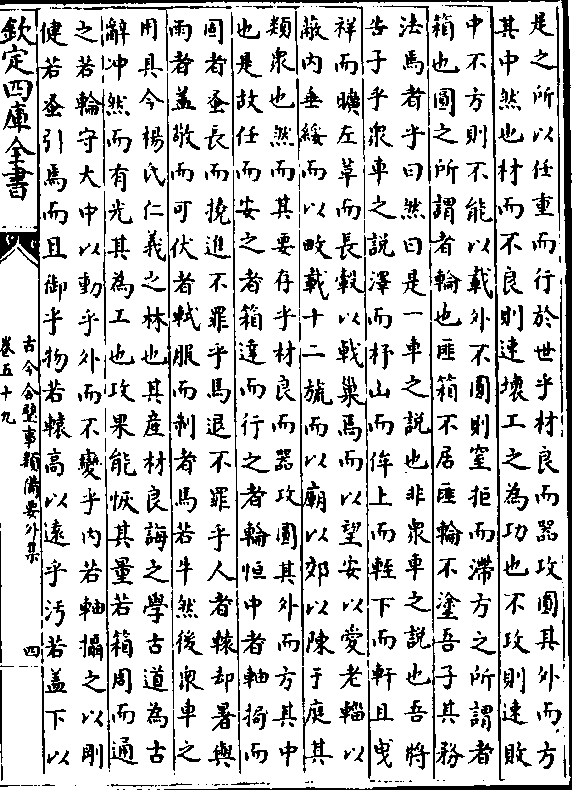 是之所以任重而行於世乎材良而器攻圓其外而方
其中然也材而不良則速壞工之為功也不攻則速敗
中不方則不能以載外不圓則窒拒而滯方之所謂者
箱也圓之所謂者輪也匪箱不居匪輪不塗吾子其務
法焉者乎曰然曰是一車之說也非衆車之說也吾將
告子乎衆車之說澤而杼山而侔上而輊下而軒且曳
祥而曠左革而長轂以戟巢焉而以望安以愛老輜以
蔽内垂綏而以畋載十二旒而以廟以郊以陳于庭其
類衆也然而其要存乎材良而器攻圓其外而方其中
也是故任而安之者箱達而行之者輪恒中者軸搊而
固者蚤長而撓進不罪乎馬退不罪乎人者轅却暑與
雨者盖敬而可伏者軾服而制者馬若牛然後衆車之
用具今楊氏仁義之林也其產材良誨之學古道為古
辭冲然而有光其為工也攻果能恢其量若箱周而通
之若輪守大中以動乎外而不變乎内若軸攝之以剛
健若蚤引焉而且御乎物若轅高以遠乎汚若盖下以
欽定四庫全書
古今合璧事類備要外集
卷五十九
四